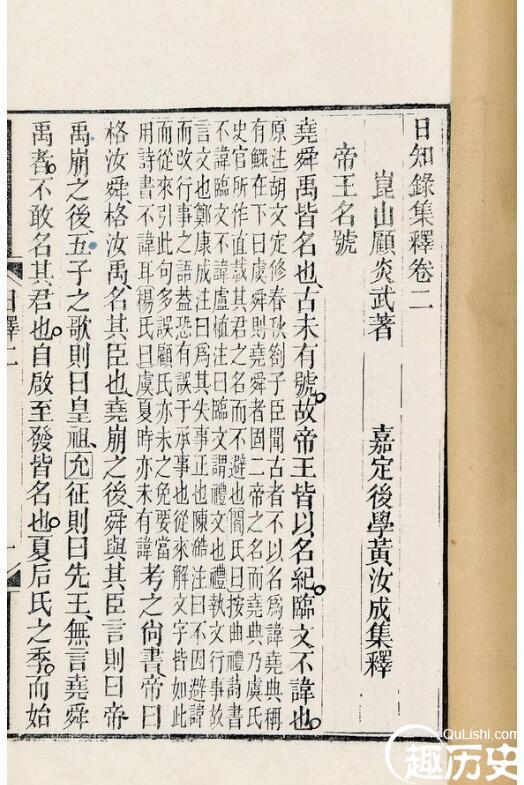 日知錄集釋卷二
崑山顧炎武著 嘉定後學黃汝成集釋
帝王名號
堯舜禹皆名也古未有號故帝王皆以名紀臨文不諱也
原注胡文定修春秋劄子臣聞古者不以名爲諱堯典稱
有鰥在下曰虞舜則堯舜者固二帝之名而堯典乃虞氏
史官所作直載其君之名而不避也閻氏曰按曲禮詩書
不諱臨文不諱盧植注曰臨文謂禮文也禮執文行事故
言文也鄭康成注曰爲其失事正也陳澔注曰不因避諱
而改行事之語蓋恐有誤于承事也從來解文字皆如此
而從來引此句多誤顧氏亦未之免要當
用詩書不諱耳楊氏曰虞夏時亦未有諱考之尚書帝曰
格汝舜格汝禹名其臣也堯崩之後舜與其臣言則曰帝
禹崩之後五子之歌則曰皇祖允征則曰先王無言堯舜
禹者不敢名其君也自啟至發皆名也夏后氏之季而始
日釋二
一
QuLishi.com
趣历史